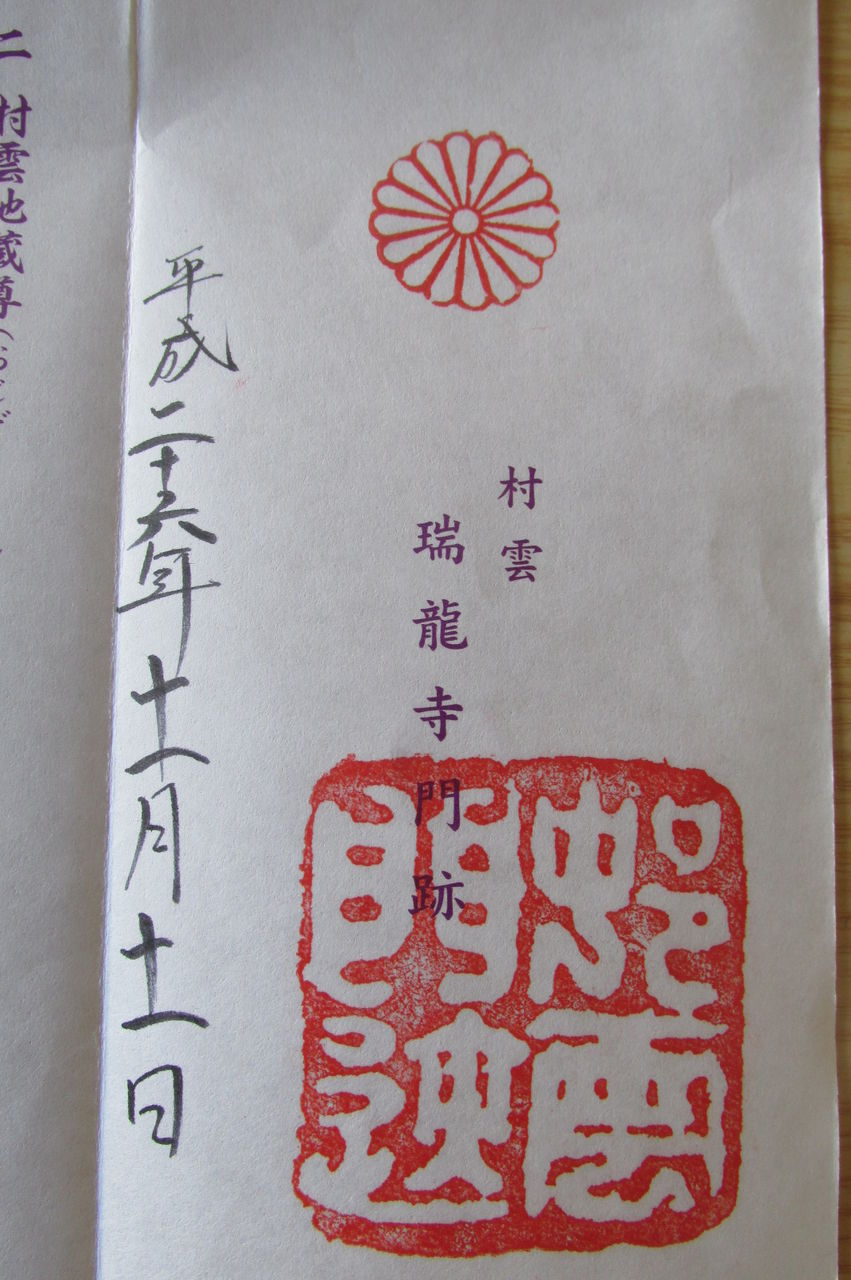 村雲
瑞龍寺門跡
平成二十六年十一月十一日
二 村雲地蔵尊（おじぞ